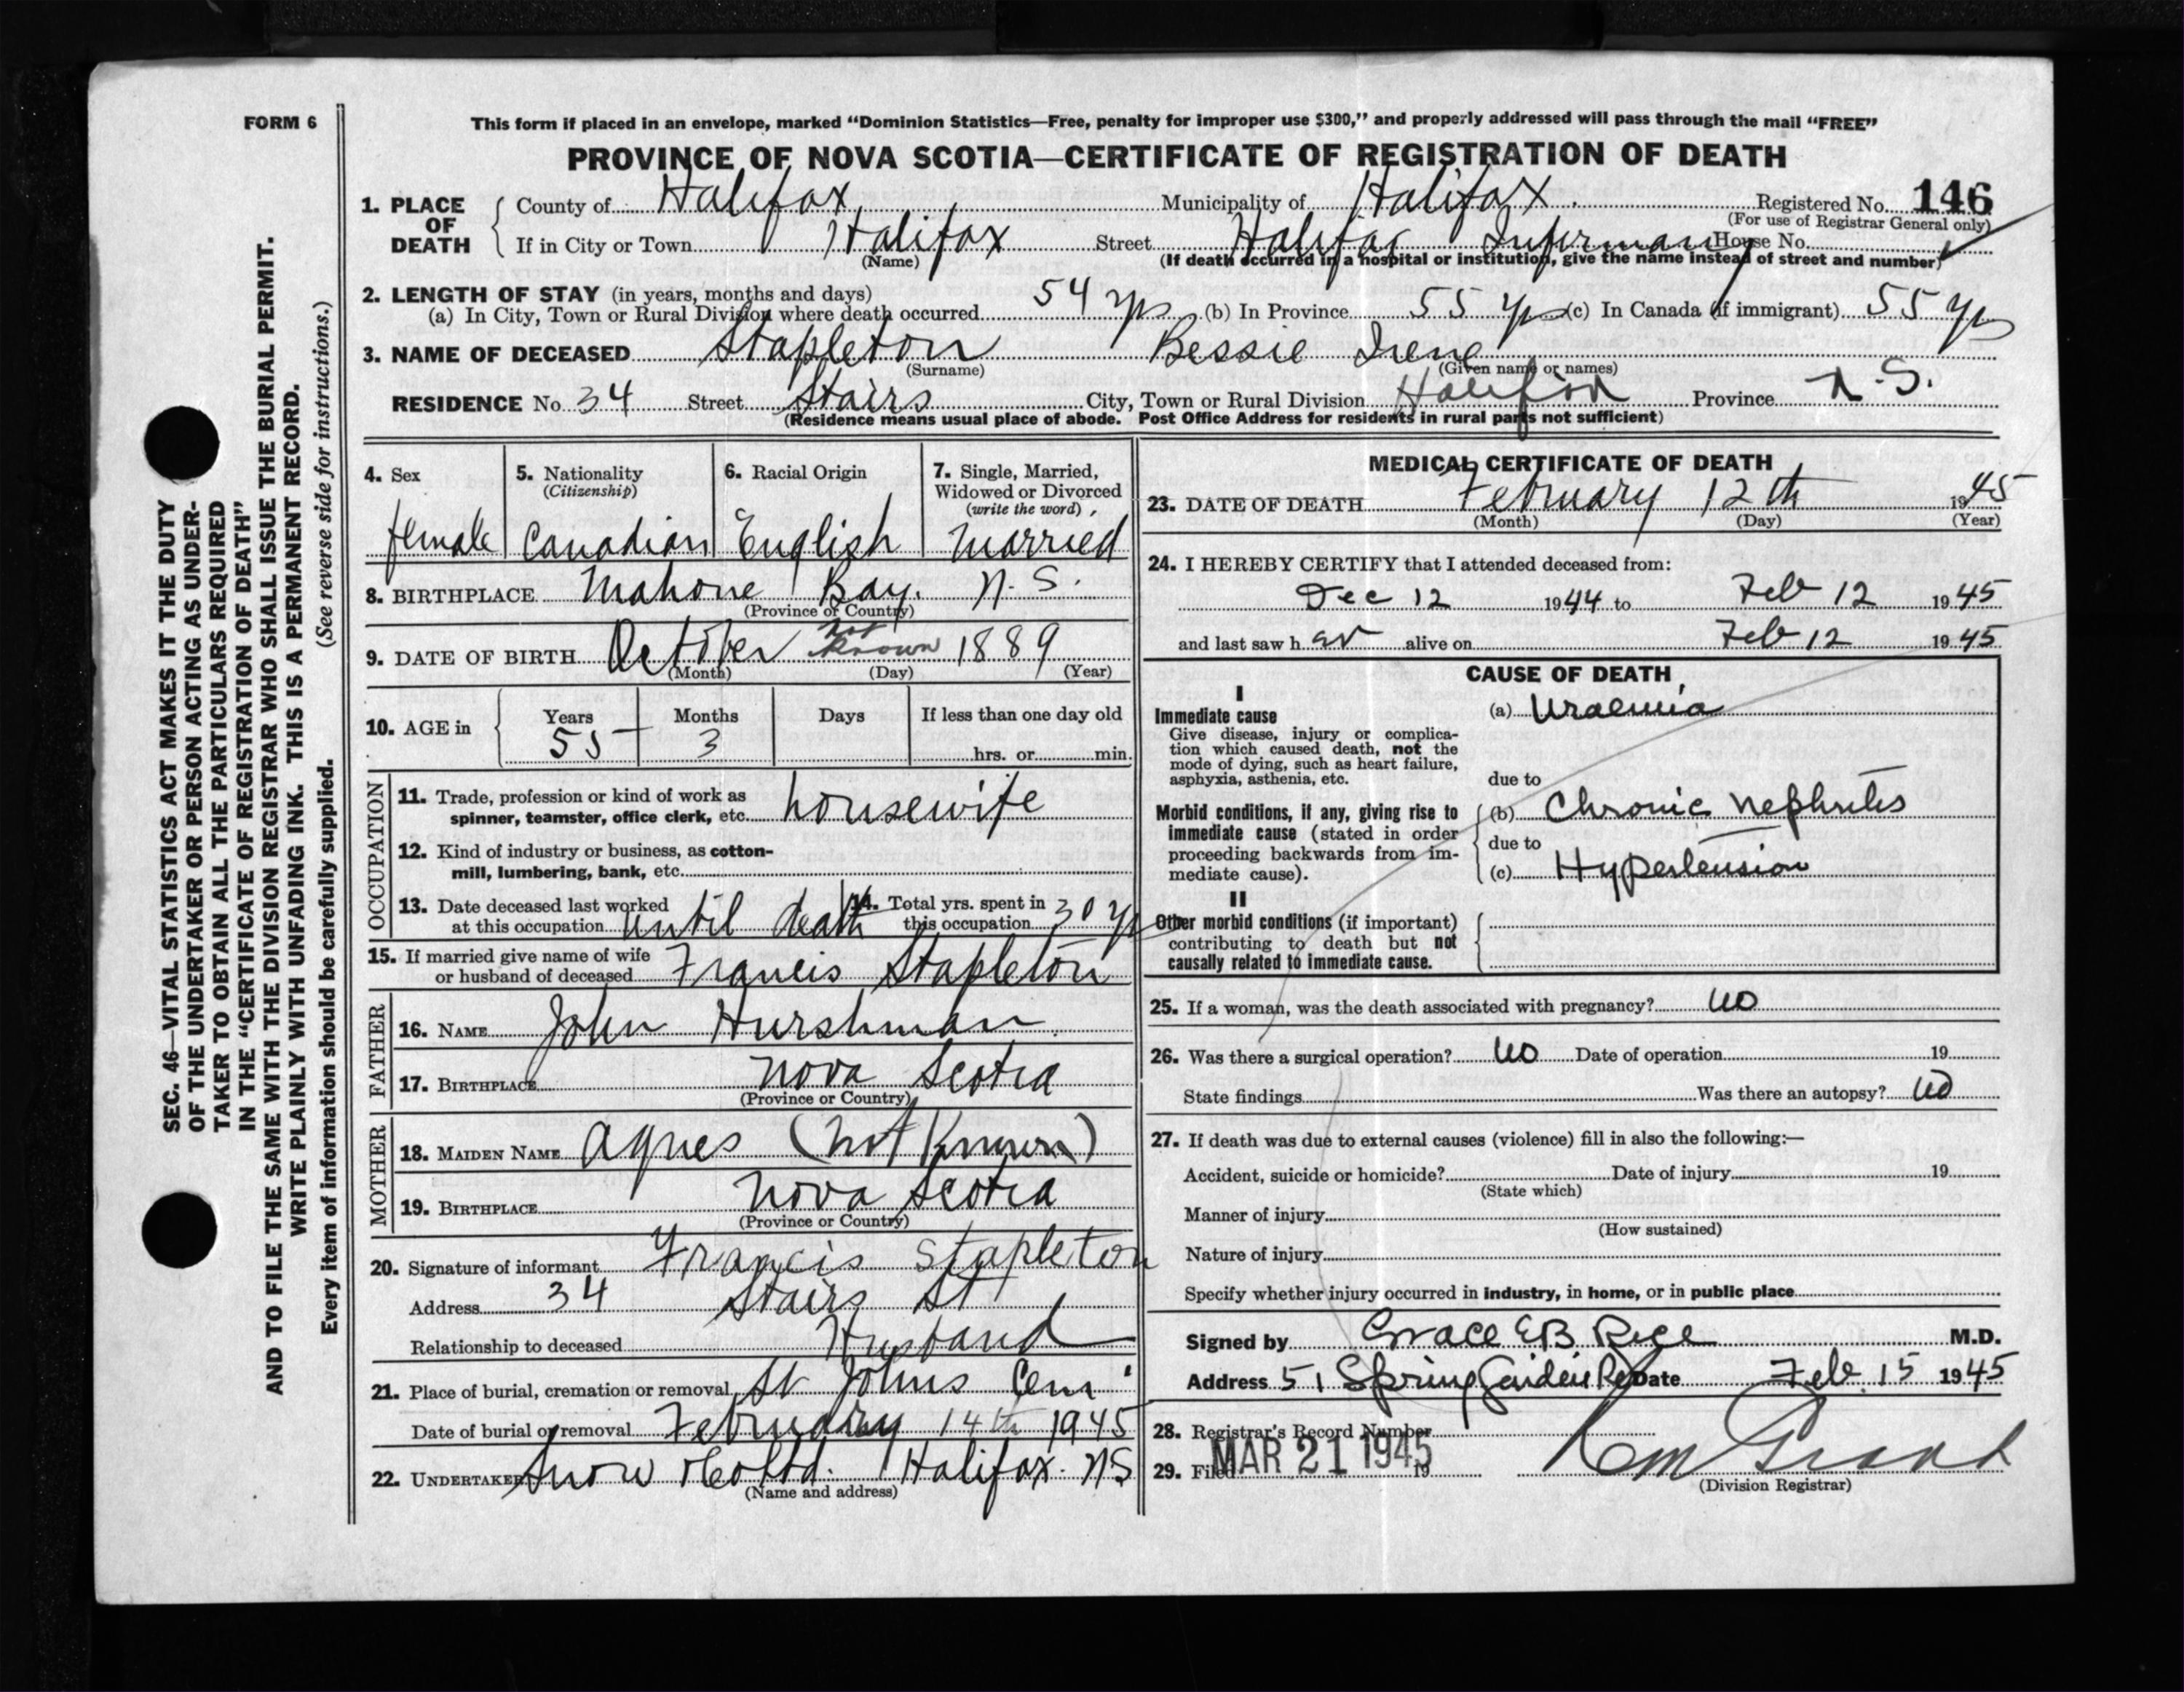 FORM 6
This form if placed in an envelope, marked “Dominion Statistics—Free, penalty for improper use $300,” and properly addressed will pass through the mail “FREE”
PROVINCE OF NOVA SCOTIA—CERTIFICATE OF REGISTRATION OF DEATH
1. PLACE OF DEATH County of Halifax Municipality of Halifax Registered No. 146
(For use of Registrar General only)
If in City or Town Halifax Street Halifax Infirmary House No.
(Name) (If death occurred in a hospital or institution, give the name instead of street and number)
2. LENGTH OF STAY (in years, months and days)
(a) In City, Town or Rural Division where death occurred 54 yrs (b) In Province 55 yrs (c) In Canada (if immigrant) 55 yrs
3. NAME OF DECEASED Stapleton Bessie Irene
(Surname) (Given name or names)
RESIDENCE No. 34 Street Stairs City, Town or Rural Division Halifax Province N.S.
(Residence means usual place of abode. Post Office Address for residents in rural parts not sufficient)
4. Sex
female
5. Nationality
(Citizenship)
Canadian
6. Racial Origin
English
7. Single, Married,
Widowed or Divorced
(write the word)
Married
8. BIRTHPLACE Mahone Bay. N.S.
(Province or Country)
9. DATE OF BIRTH October not known 1889
(Month) (Day) (Year)
10. AGE in Years Months Days If less than one day old
55 3 hrs. or min.
OCCUPATION
11. Trade, profession or kind of work as
spinner, teamster, office clerk, etc. housewife
12. Kind of industry or business, as cotton-
mill, lumbering, bank, etc.
13. Date deceased last worked
at this occupation until death
14. Total yrs. spent in
this occupation 30 yrs
15. If married give name of wife
or husband of deceased Francis Stapleton
FATHER
16. NAME John Hurshman
17. BIRTHPLACE Nova Scotia
(Province or Country)
MOTHER
18. MAIDEN NAME Agnes (not known)
19. BIRTHPLACE Nova Scotia
(Province or Country)
20. Signature of informant Francis Stapleton
Address 34 Stairs St
Relationship to deceased Husband
21. Place of burial, cremation or removal St Johns Cem
Date of burial or removal February 14th 1945
22. UNDERTAKER Snow & Co Ltd. Halifax. NS
(Name and address)
MEDICAL CERTIFICATE OF DEATH
23. DATE OF DEATH February 12th 1945
(Month) (Day) (Year)
24. I HEREBY CERTIFY that I attended deceased from:
Dec 12 1944 to Feb 12 1945
and last saw her alive on Feb 12 1945
CAUSE OF DEATH
I
Immediate cause
Give disease, injury or complica-
tion which caused death, not the
mode of dying, such as heart failure,
asphyxia, asthenia, etc.
(a) Uraemia
due to
Morbid conditions, if any, giving rise to
immediate cause (stated in order
proceeding backwards from im-
mediate cause).
(b) Chronic Nephritis
due to
(c) Hypertension
II
Other morbid conditions (if important)
contributing to death but not
causally related to immediate cause.
25. If a woman, was the death associated with pregnancy? no
26. Was there a surgical operation? no Date of operation 19
State findings Was there an autopsy? no
27. If death was due to external causes (violence) fill in also the following:—
Accident, suicide or homicide? Date of injury 19
(State which)
Manner of injury
(How sustained)
Nature of injury
Specify whether injury occurred in industry, in home, or in public place
Signed by Grace E B Rice M.D.
Address 51 Spring Garden Rd Date Feb. 15 1945
28. Registrar's Record Number
29. Filed MAR 21 1945 19
(Division Registrar)
SEC. 46—VITAL STATISTICS ACT MAKES IT THE DUTY
OF THE UNDERTAKER OR PERSON ACTING AS UNDER-
TAKER TO OBTAIN ALL THE PARTICULARS REQUIRED
IN THE “CERTIFICATE OF REGISTRATION OF DEATH”
AND TO FILE THE SAME WITH THE DIVISION REGISTRAR WHO SHALL ISSUE THE BURIAL PERMIT.
WRITE PLAINLY WITH UNFADING INK. THIS IS A PERMANENT RECORD.
Every item of information should be carefully supplied. (See reverse side for instructions.)